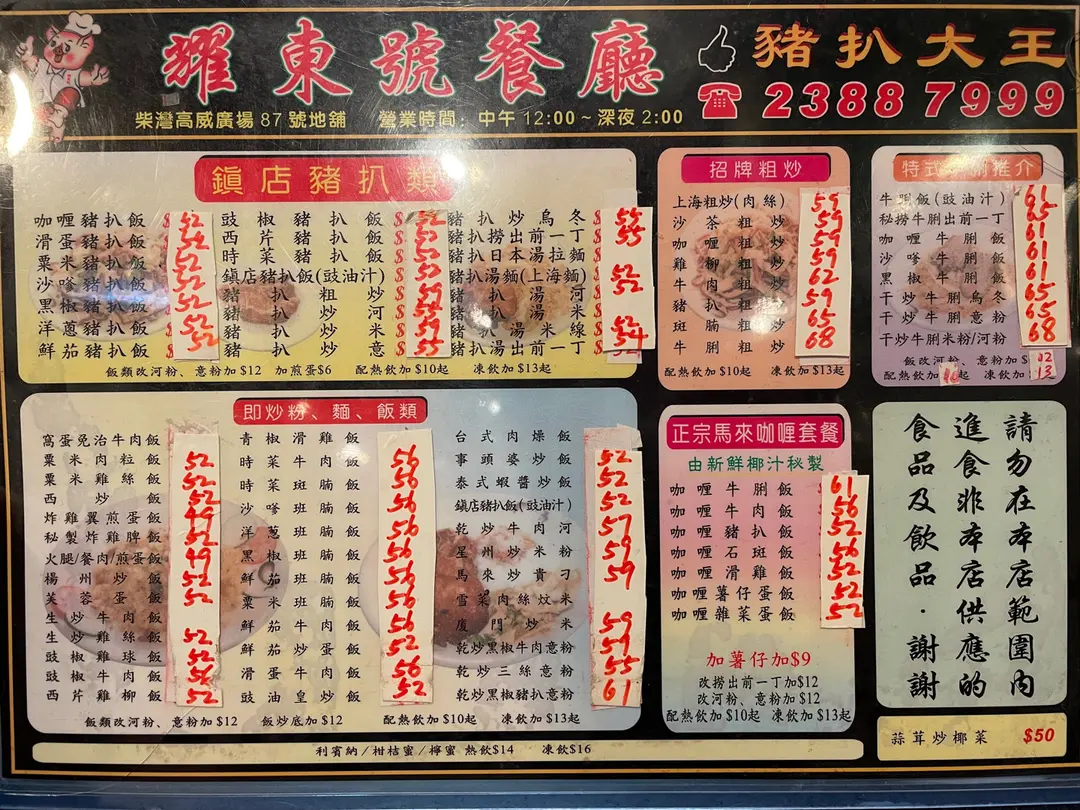 耀東號餐廳
豬扒大王
柴灣高威廣場 87 號地舖 營業時間：中午 12:00 ~ 深夜 2:00
☎ 2388 7999
鎮店豬扒類
咖喱豬扒飯 52
滑蛋豬扒飯 52
粟米豬扒飯 52
沙嗲豬扒飯 52
黑椒豬扒飯 52
洋蔥豬扒飯 52
鮮茄豬扒飯 52
豉椒豬扒飯
西芹豬扒飯
時菜豬扒飯
鎮店豬扒飯(豉油汁)
豬扒粗炒
豬扒炒河
豬扒炒米
豬扒炒意 55
豬扒炒烏冬 55
豬扒撈出前一丁 55
豬扒日本湯拉麵
豬扒湯麵(上海麵) 52
豬扒湯河
豬扒湯米
豬扒湯米線
豬扒湯出前一丁 54
飯類改河粉、意粉加 $12 加煎蛋$6 配熱飲加 $10起 凍飲加 $13起
招牌粗炒
上海粗炒(肉絲) 59
沙茶粗炒 59
咖喱粗炒 59
雞柳粗炒 59
牛肉粗炒 62
豬扒粗炒 59
斑腩粗炒 65
牛脷粗炒 68
配熱飲加 $10起 凍飲加 $13起
特式 推介
牛脷飯(豉油汁) 61
秘撈牛脷出前一丁 65
咖喱牛脷飯 61
沙嗲牛脷飯 61
黑椒牛脷飯 61
干炒牛脷烏冬 65
干炒牛脷意粉 65
干炒牛脷米粉/河粉 68
飯改河粉、意粉加 $12
配熱飲加 10起 凍飲加 13
即炒粉、麵、飯類
窩蛋免治牛肉飯 52
粟米肉粒飯 52
粟米雞絲飯 52
西炒飯 49
炸雞翼煎蛋飯 52
秘製炸雞脾飯 52
火腿/餐肉/煎蛋飯 49
揚州炒飯 52
芙蓉蛋飯 52
生炒牛肉飯
生炒雞絲飯 52
豉椒雞球飯 52
豉椒牛肉飯 56
西芹雞柳飯 52
青椒滑雞飯 56
時菜牛肉飯 56
時菜斑腩飯 56
沙嗲斑腩飯 56
洋葱斑腩飯 56
黑椒斑腩飯 56
鮮茄斑腩飯 56
粟米斑腩飯 56
鮮茄牛肉飯 56
鮮茄炒蛋飯 52
滑蛋牛肉飯 56
豉油皇炒飯 52
台式肉燥飯 52
事頭婆炒飯 52
泰式蝦醬炒飯 52
鎮店豬扒飯(豉油汁) 52
乾炒牛肉河 59
星州炒米粉 59
馬來炒貴刁 59
雪菜肉絲炆米
廈門炒米 59
乾炒黑椒牛肉意粉 59
乾炒三絲意粉 55
乾炒黑椒豬扒意粉 61
飯類改河粉、意粉加 $12 飯炒底加 $12 配熱飲加 $10起 凍飲加 $13起
正宗馬來咖喱套餐
由新鮮椰汁秘製
咖喱牛脷飯 61
咖喱牛肉飯 56
咖喱豬扒飯 52
咖喱石斑飯 56
咖喱滑雞飯 52
咖喱薯仔蛋飯 52
咖喱雜菜蛋飯 52
加薯仔加$9
改撈出前一丁加$12
改河粉、意粉加$12
配熱飲加 $10起 凍飲加 $13起
請勿在本店範圍內
進食非本店供應的
食品及飲品．謝謝
利賓納/柑桔蜜/檸蜜 熱飲$14 凍飲$16
蒜茸炒椰菜 $50